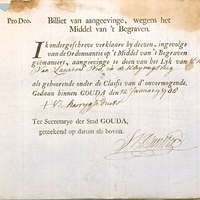 Pro Deo. Billiet van aangeevinge, wegens het
Middel van 't Begraven.
Ik ondergeschreve verklaare by deezen, ingevolge
van de Ordonnantie op 't Middel van 't Begraven
geëmaneert, aangeevinge te doen van het Lyk van
Van
als gehoorende onder de Classis van d' onvermogende.
Gedaan binnen GOUDA, den 12 January
Ter Secretarye der Stad GOUDA,
geteekend op datum als boven.